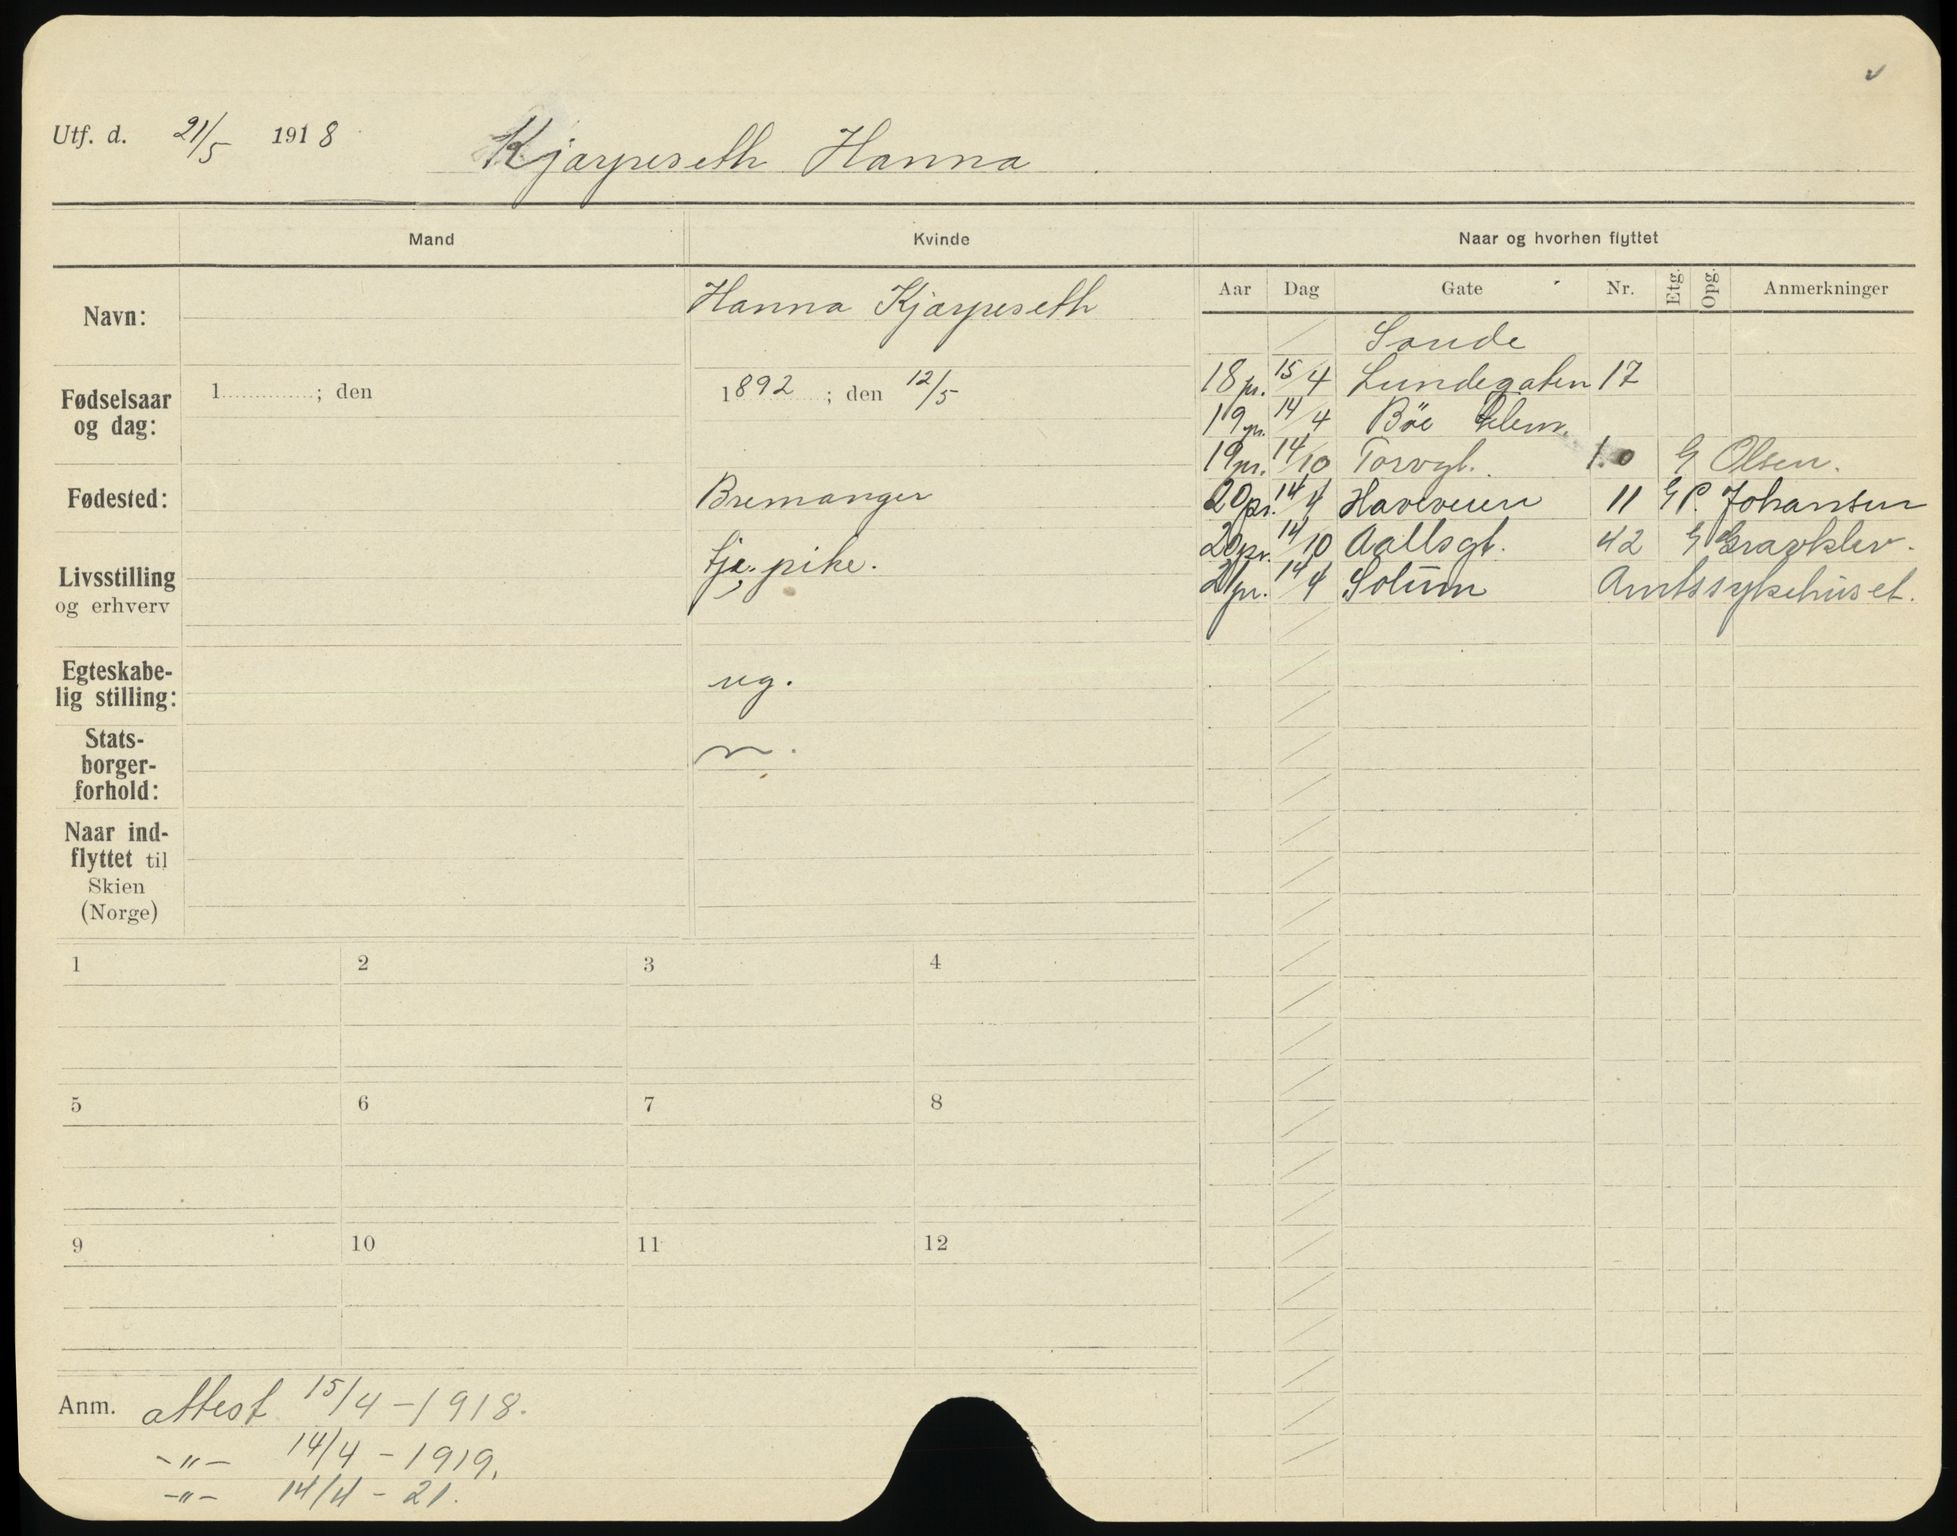 Utf. d. 21/5 1918 Kjarpeseth Hanna
Mand Kvinde Naar og hvorhen flyttet
Aar Dag Gate Nr. Etg. Opg. Anmerkninger
Navn: Hanna Kjarpeseth
Sande
Fødselsaar og dag: 1 ; den 1892 ; den 12/5
18 pr. 15/4 Lundegaten 17
19 pr. 14/4 Böe
19 pr. 14/10 Torvgt. 10 G Olsen.
Fødested: Bremanger
20 pr. 14/4 Haveveien 11 G P. Johansen
Livsstilling og erhverv tje. pike.
20 pr. 14/10 Aallsgt. 42 G Gravklev.
21 pr. 14/4 Solum Amtssykehuset.
Egteskabe-
lig stilling: ug.
Stats-
borger-
forhold: n.
Naar ind-
flyttet til
Skien
(Norge)
1 2 3 4
5 6 7 8
9 10 11 12
Anm. attest 15/4 - 1918.
-"- 14/4 - 1919.
-"- 14/4 - 21.